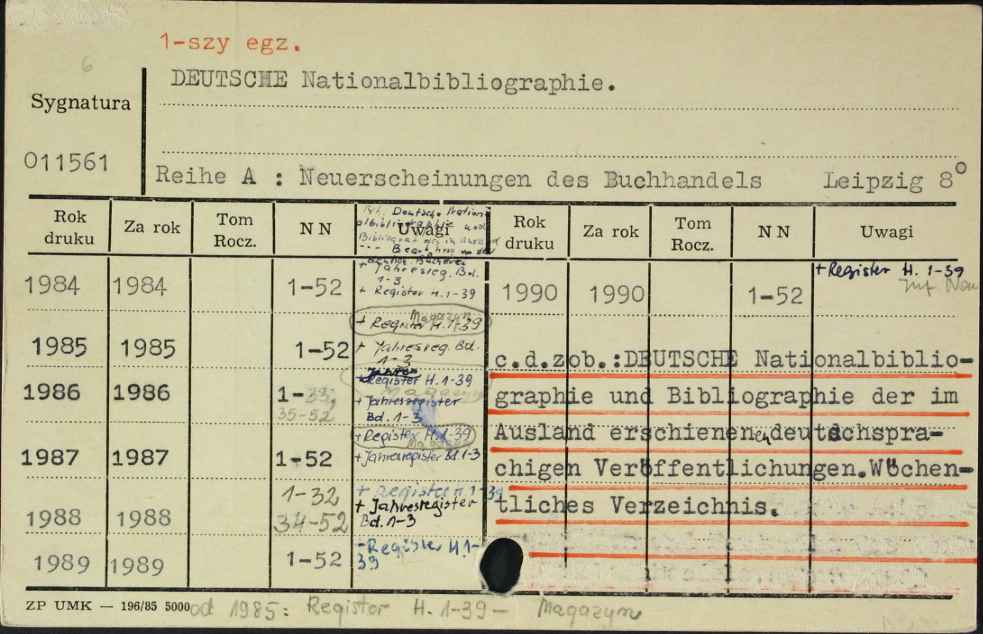 1-szy egz.
6
DEUTSCHE Nationalbibliographie.
Sygnatura
011561
Reihe A : Neuerscheinungen des Buchhandels Leipzig 8°
Rok druku Za rok Tom Rocz. N N Uwagi Rok druku Za rok Tom Rocz. N N Uwagi
1984 1984 1-52 + Jahresreg. Bd. 1-3
+ Register H. 1-39
1990 1990 1-52 + Register H. 1-39
Magazyn
+ Register H. 1-39
1985 1985 1-52 + Jahresreg. Bd. 1-3
1986 1986 1-33, 35-52 + Register H. 1-39
+ Jahresregister Bd. 1-3
+ Register H. 1-39
1987 1987 1-52 + Jahresregister Bd. 1-3
1988 1988 1-32 34-52 + Register H. 1-39
+ Jahresregister Bd. 1-3
1989 1989 1-52 - Register H. 1-39
c.d.zob.:DEUTSCHE Nationalbiblio-
graphie und Bibliographie der im
Ausland erschienenen deutdchspra-
chigen Veröffentlichungen.Wöchen-
tliches Verzeichnis.
ZP UMK — 196/85 5000
od 1985: Register H. 1-39 - Magazyn